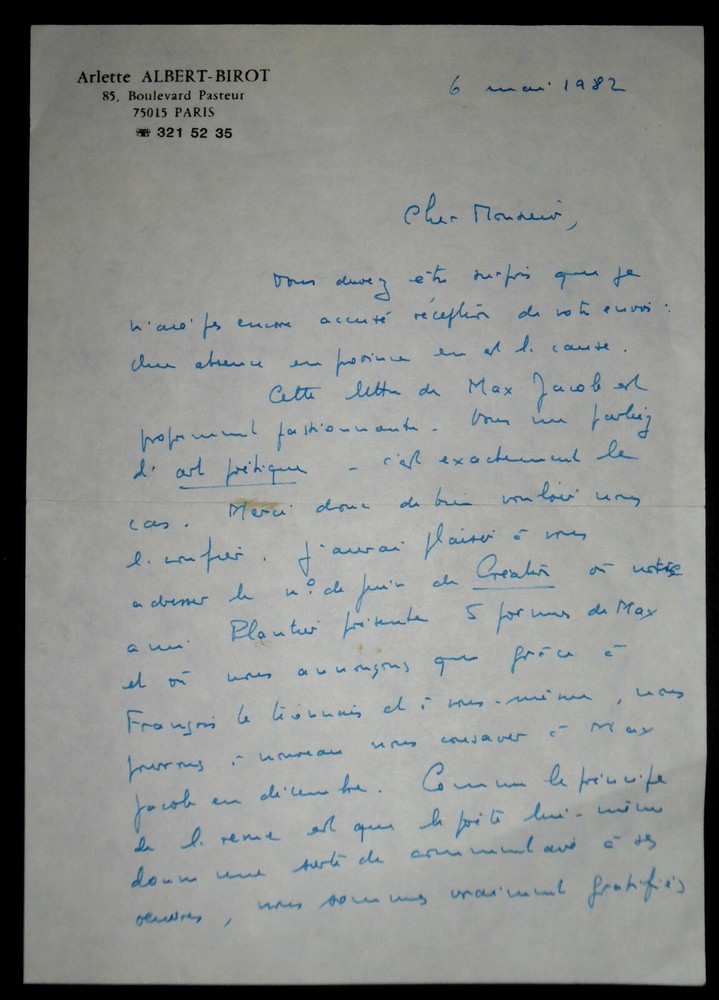 Arlette ALBERT-BIROT
85, Boulevard Pasteur
75015 PARIS
☎ 321 52 35
6 mai 1982
Cher Monsieur,
Vous devez être surpris que je
n'aie pas encore accusé réception de votre envoi :
Une absence en province en est la cause.
Cette lettre de Max Jacob est
proprement passionnante. Vous me parliez
d'art poétique - c'est exactement le
cas. Merci donc de bien vouloir nous
la confier. J'aurai plaisir à vous
adresser le n° de juin de Création où notre
ami Plantier présente 5 poèmes de Max
et où nous annonçons que grâce à
François le Lionnais et à vous-même, nous
pourrons à nouveau nous consacrer à Max
Jacob en décembre. Comme le principe
de la revue est que le poète lui-même
donne une sorte de commentaire à ses
oeuvres, nous sommes vraiment gratifiés